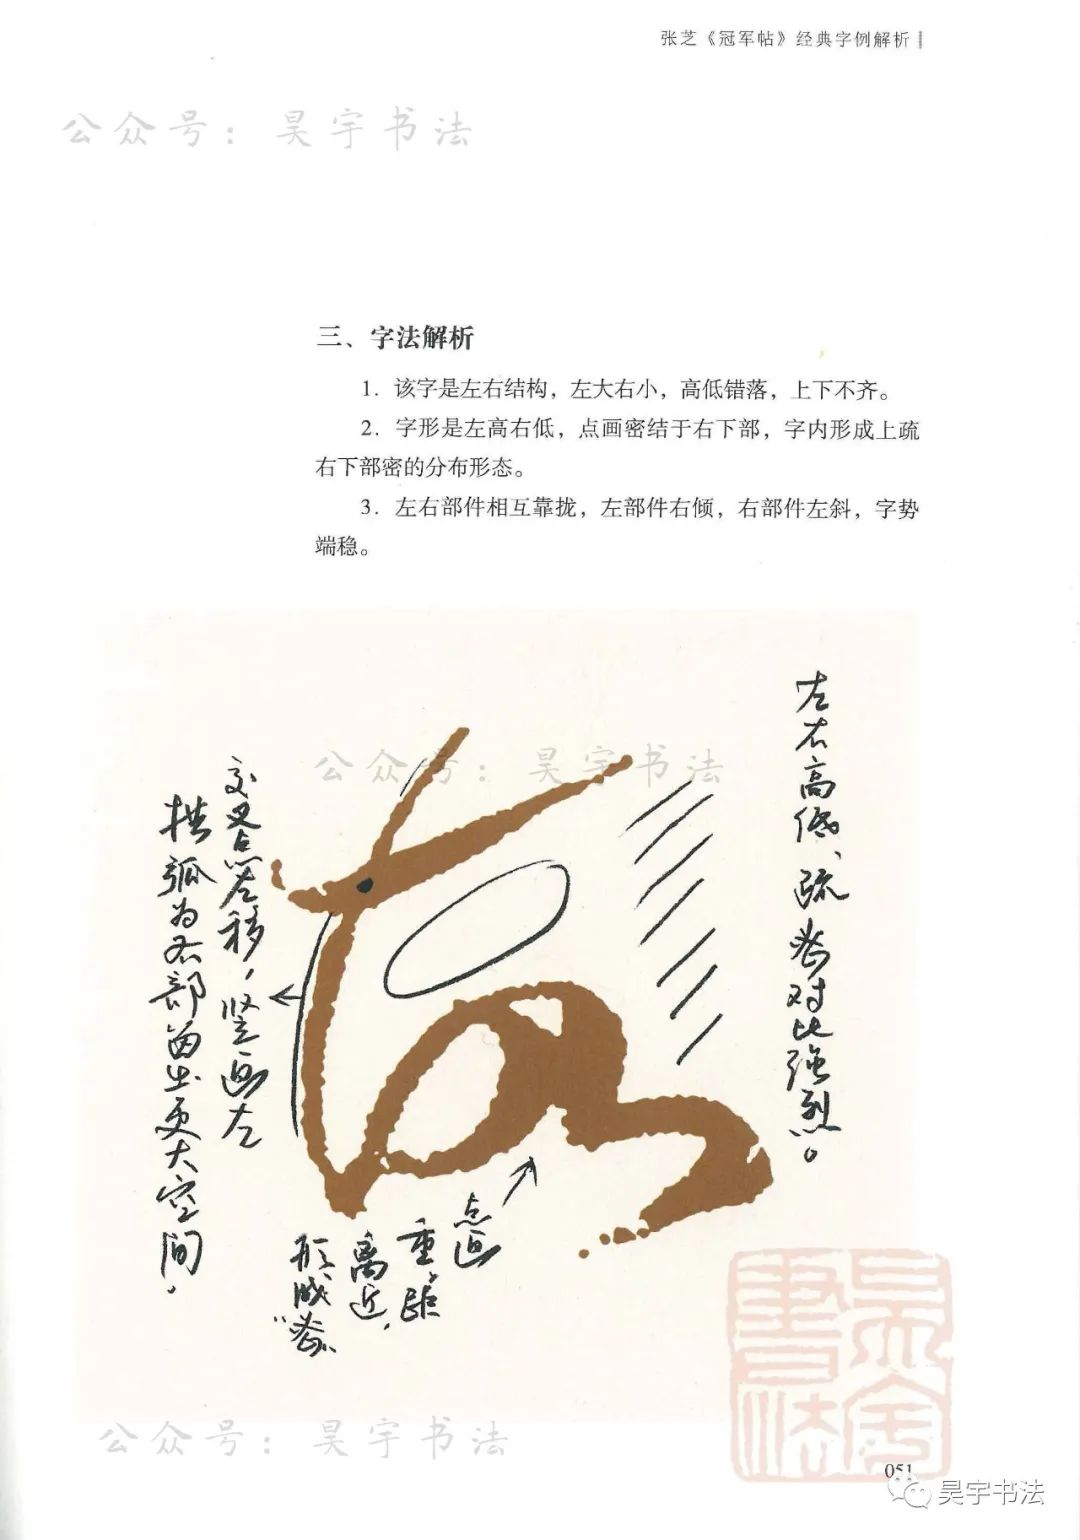 张芝《冠军帖》经典字例解析
公众号：昊宇书法
三、字法解析
1．该字是左右结构，左大右小，高低错落，上下不齐。
2．字形是左高右低，点画密结于右下部，字内形成上疏
右下部密的分布形态。
3．左右部件相互靠拢，左部件右倾，右部件左斜，字势
端稳。
公众号：昊宇书法
左右高低、疏密对比强烈。
交叉点左移，竖画左
拱弧为右部留出更大空间。
点画
重，距
离近，
形成“密”
昊宇書法
公众号：昊宇书法
051
昊宇书法